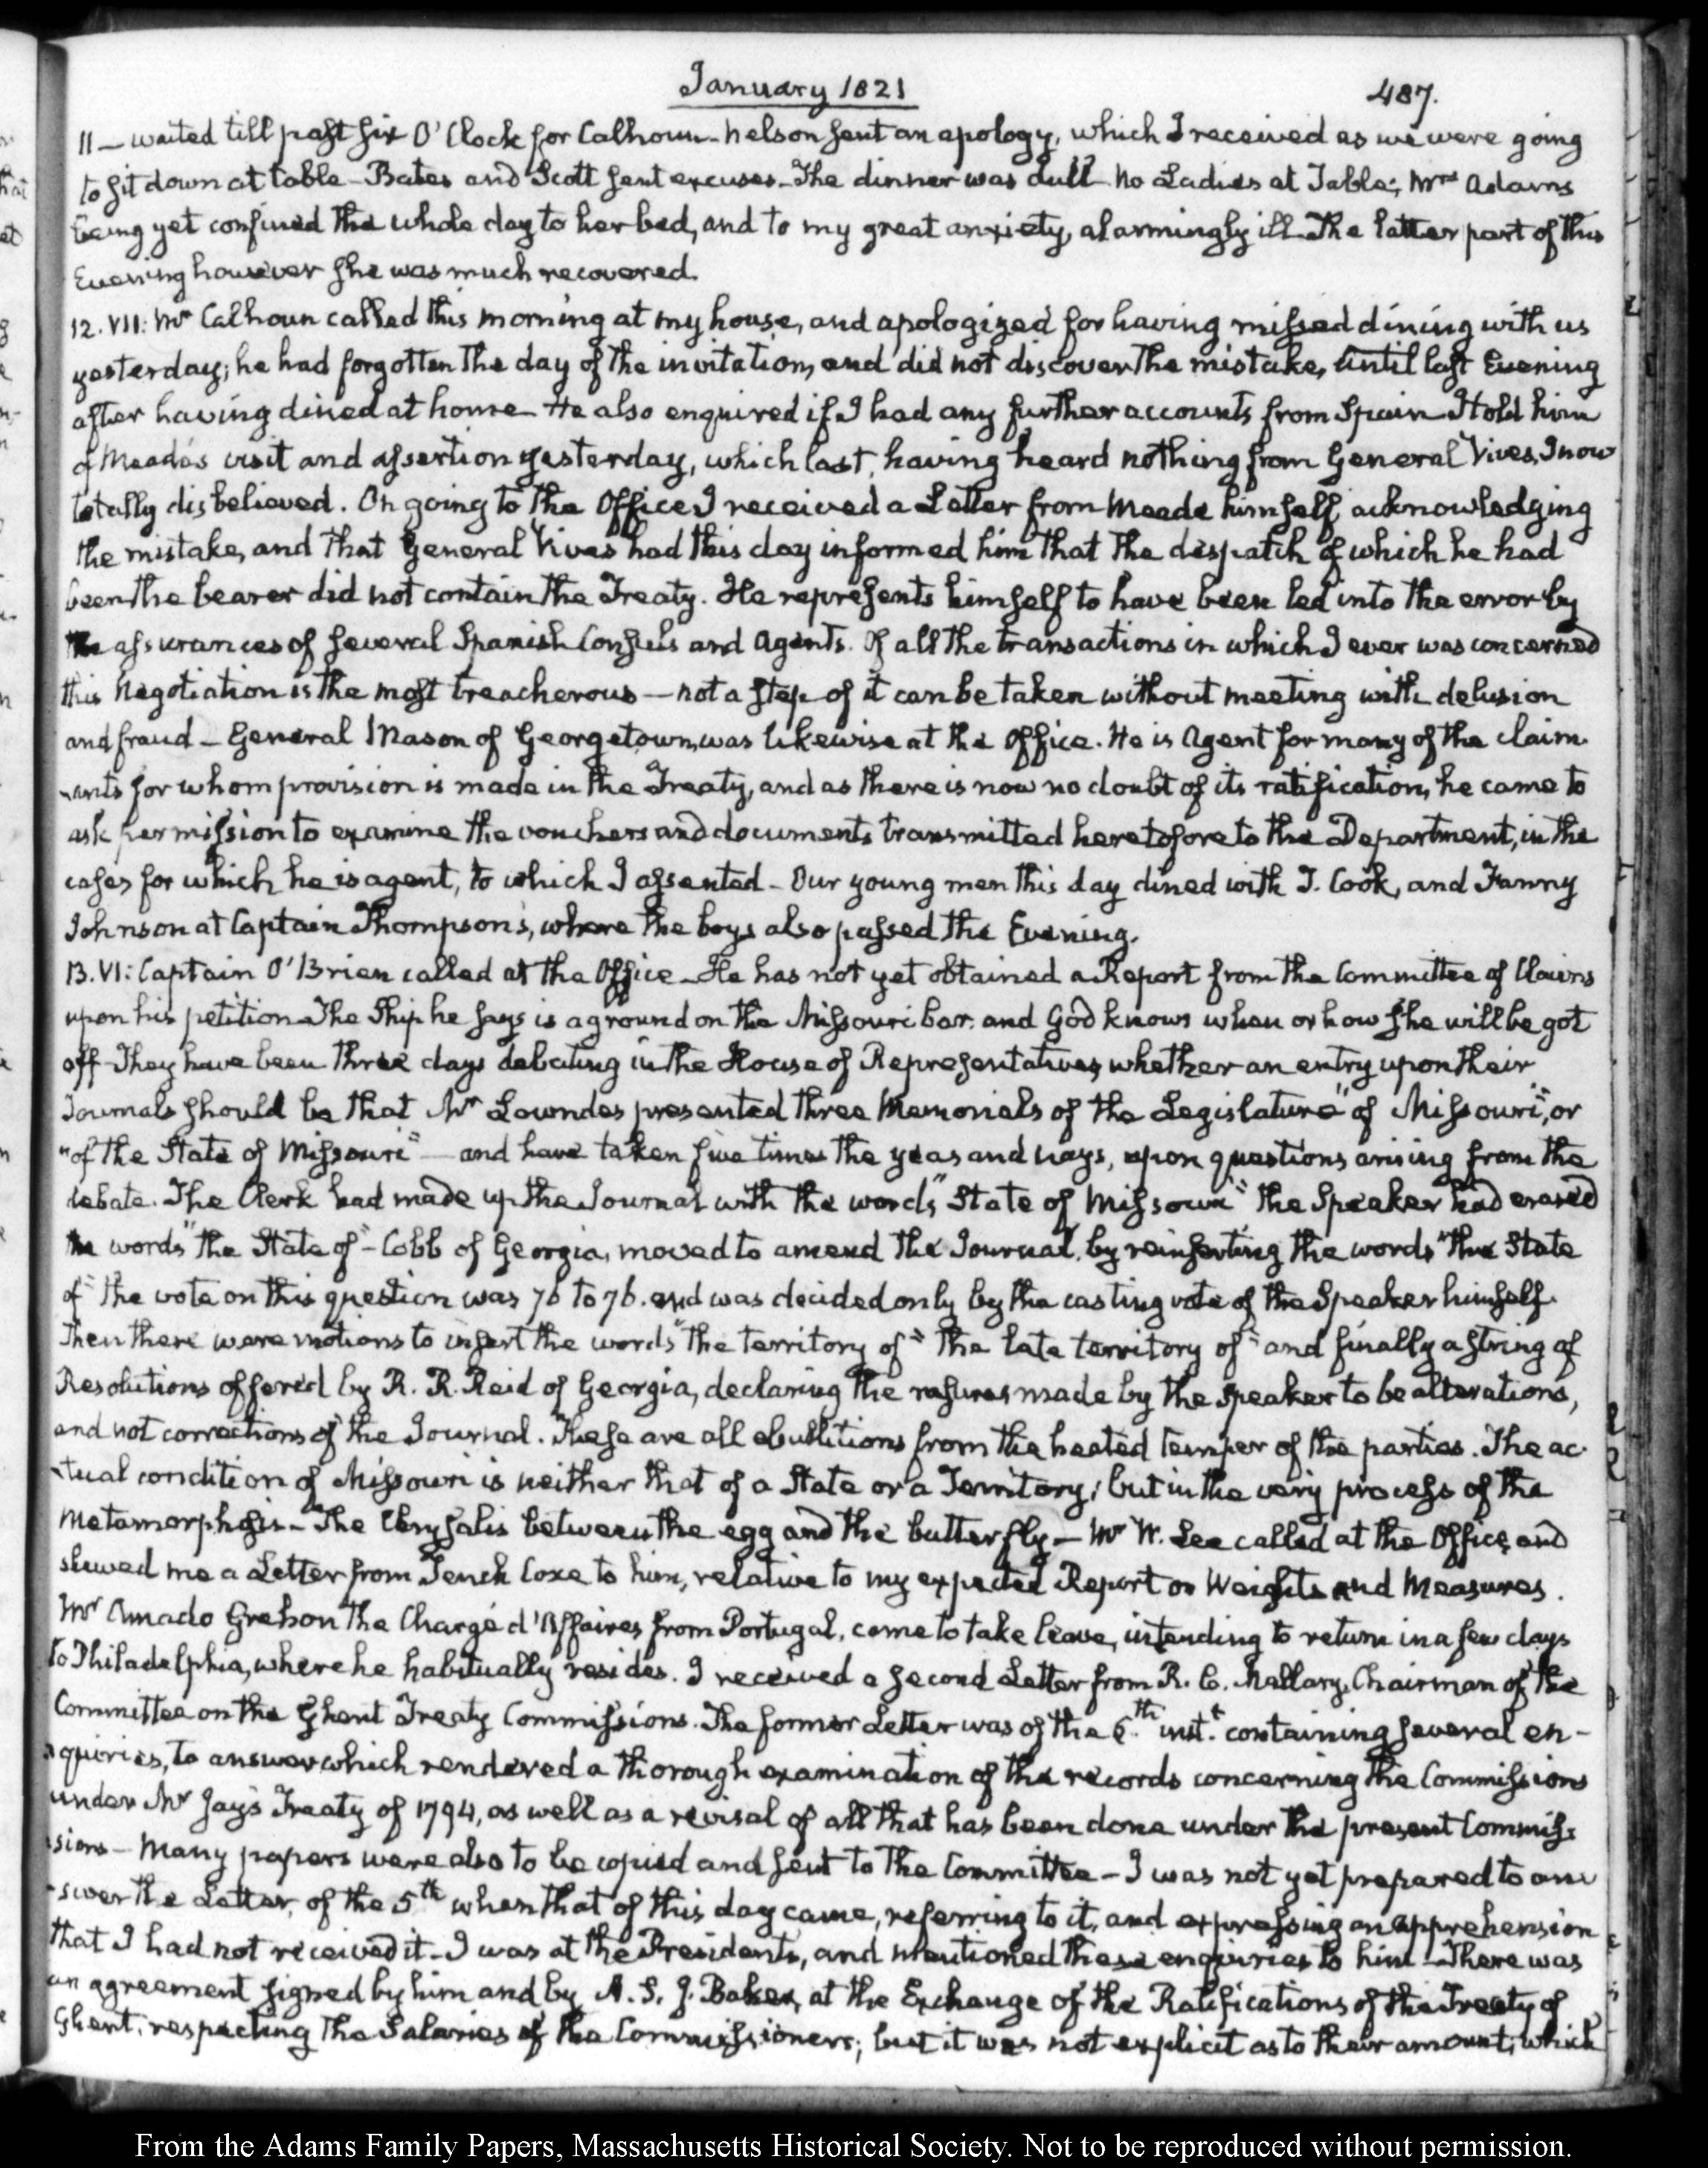 January 1821
487.
11 — waited till past six O'Clock for Calhoun - Nelson sent an apology, which I received as we were going
to sit down at table - Bates and Scott sent excuses - The dinner was dull - No Ladies at Table; Mrs Adams
being yet confined the whole day to her bed, and to my great anxiety, alarmingly ill - The latter part of this
Evening however she was much recovered.
12. VII: Mr Calhoun called this morning at my house, and apologized for having missed dining with us
yesterday; he had forgotten the day of the invitation, and did not discover the mistake, until last Evening
after having dined at home - He also enquired if I had any further accounts from Spain - I told him
of Meade's visit and assertion yesterday, which last, having heard nothing from General Vives, I now
totally disbelieved. On going to the Office I received a Letter from Meade himself, acknowledging
the mistake, and that General Vives had this day informed him that the despatch of which he had
been the bearer did not contain the Treaty. He represents himself to have been led into the error by
the assurances of several Spanish Consuls and Agents. Of all the transactions in which I ever was concerned
this Negotiation is the most treacherous — not a step of it can be taken without meeting with delusion
and fraud - General Mason of Georgetown, was likewise at the Office. He is Agent for many of the claim-
-ants for whom provision is made in the Treaty, and as there is now no doubt of its ratification, he came to
ask permission to examine the vouchers and documents transmitted heretofore to the Department, in the
cases for which he is agent, to which I assented - Our young men this day dined with J. Cook, and Fanny
Johnson at Captain Thompson's, where the boys also passed the Evening.
13. VI: Captain O'Brien called at the Office - He has not yet obtained a Report from the Committee of Claims
upon his petition - The Ship he says is aground on the Missouri bar. and God knows when or how she will be got
off - They have been three days debating in the House of Representatives, whether an entry upon their
Journals should be that Mr Lowndes presented three Memorials of the Legislature "of Missouri", or
"of the State of Missouri" — and have taken five times the yeas and nays, upon questions arising from the
debate. The Clerk had made up the Journal with the words "State of Missouri" the Speaker had erased
the words "the State of" - Cobb of Georgia, moved to amend the Journal, by reinserting the words "the State
of" the vote on this question was 76 to 76. and was decided only by the casting vote of the Speaker himself.
Then there were motions to insert the words "the territory of" "the late territory of" and finally a string of
Resolutions offered by R. R. Reid of Georgia, declaring the rasures made by the Speaker to be alterations,
and not corrections of the Journal. These are all ebullitions from the heated temper of the parties. The ac-
-tual condition of Missouri is neither that of a State or a Territory; but in the very process of the
metamorphosis - The Chrysalis between the egg and the butterfly — Mr W. Lee called at the Office, and
shewed me a Letter from Tench Coxe to him, relative to my expected Report on Weights and Measures.
Mr Amado Grehon the Chargé d'Affaires from Portugal, came to take leave, intending to return in a few days
to Philadelphia, where he habitually resides. I received a second Letter from R. C. Mallary, Chairman of the
Committee on the Ghent Treaty Commissions. The former Letter was of the 5th inst. containing several en-
-quiries, to answer which rendered a thorough examination of the records concerning the Commissions
under Mr Jay's Treaty of 1794, as well as a revisal of all that has been done under the present Commis-
-sions - Many papers were also to be copied and sent to the Committee - I was not yet prepared to an-
-swer the Letter, of the 5th when that of this day came, referring to it, and expressing an apprehension
that I had not received it - I was at the President's, and mentioned these enquiries to him - There was
an agreement signed by him and by A. S. J. Baker, at the Exchange of the Ratifications of the Treaty of
Ghent, respecting the Salaries of the Commissioners; but it was not explicit as to their amount; which
From the Adams Family Papers, Massachusetts Historical Society. Not to be reproduced without permission.